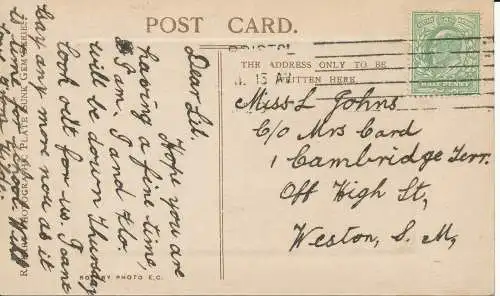 POST CARD.
THE ADDRESS ONLY TO BE
WRITTEN HERE.
BRISTOL
15 AU
HALF PENNY
Dear Lil.
Hope you are
having a fine time,
I am. I and Flo.
will be down Thursday
look out for us. I cant
say any more now as it
is
Miss L Johns
C/o Mrs Card
1 Cambridge Terr.
Off High St,
Weston, S. M,
ROTARY PHOTO E.C.
ROTARY PHOTOGRAPHIC PLATE SUNK GEM SERIES